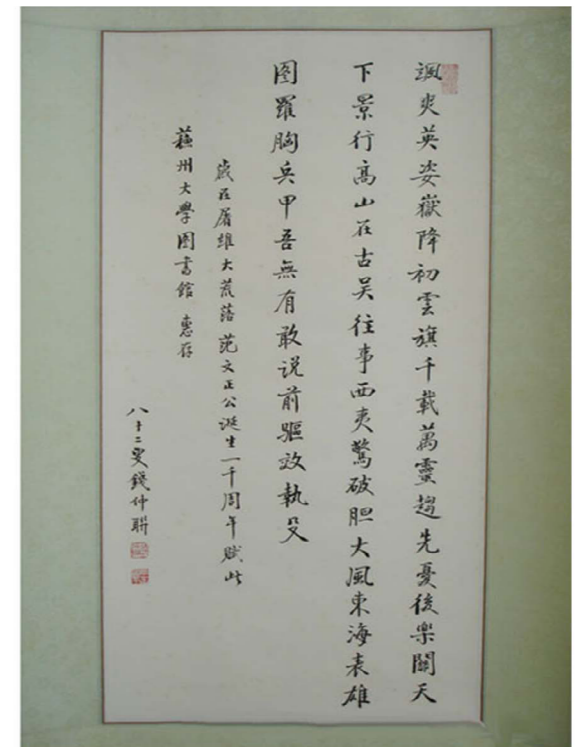 颯爽英姿嶽降初雲旗千載萬靈趨先憂後樂關天
下景行高山在古吴往事西夷驚破胆大風東海表雄
图羅胸兵甲吾無有敢说前驅效執殳
歲在屠維大荒落范文正公诞生一千周年赋此
蘇州大學图書館 惠存
八十二叟錢仲聯